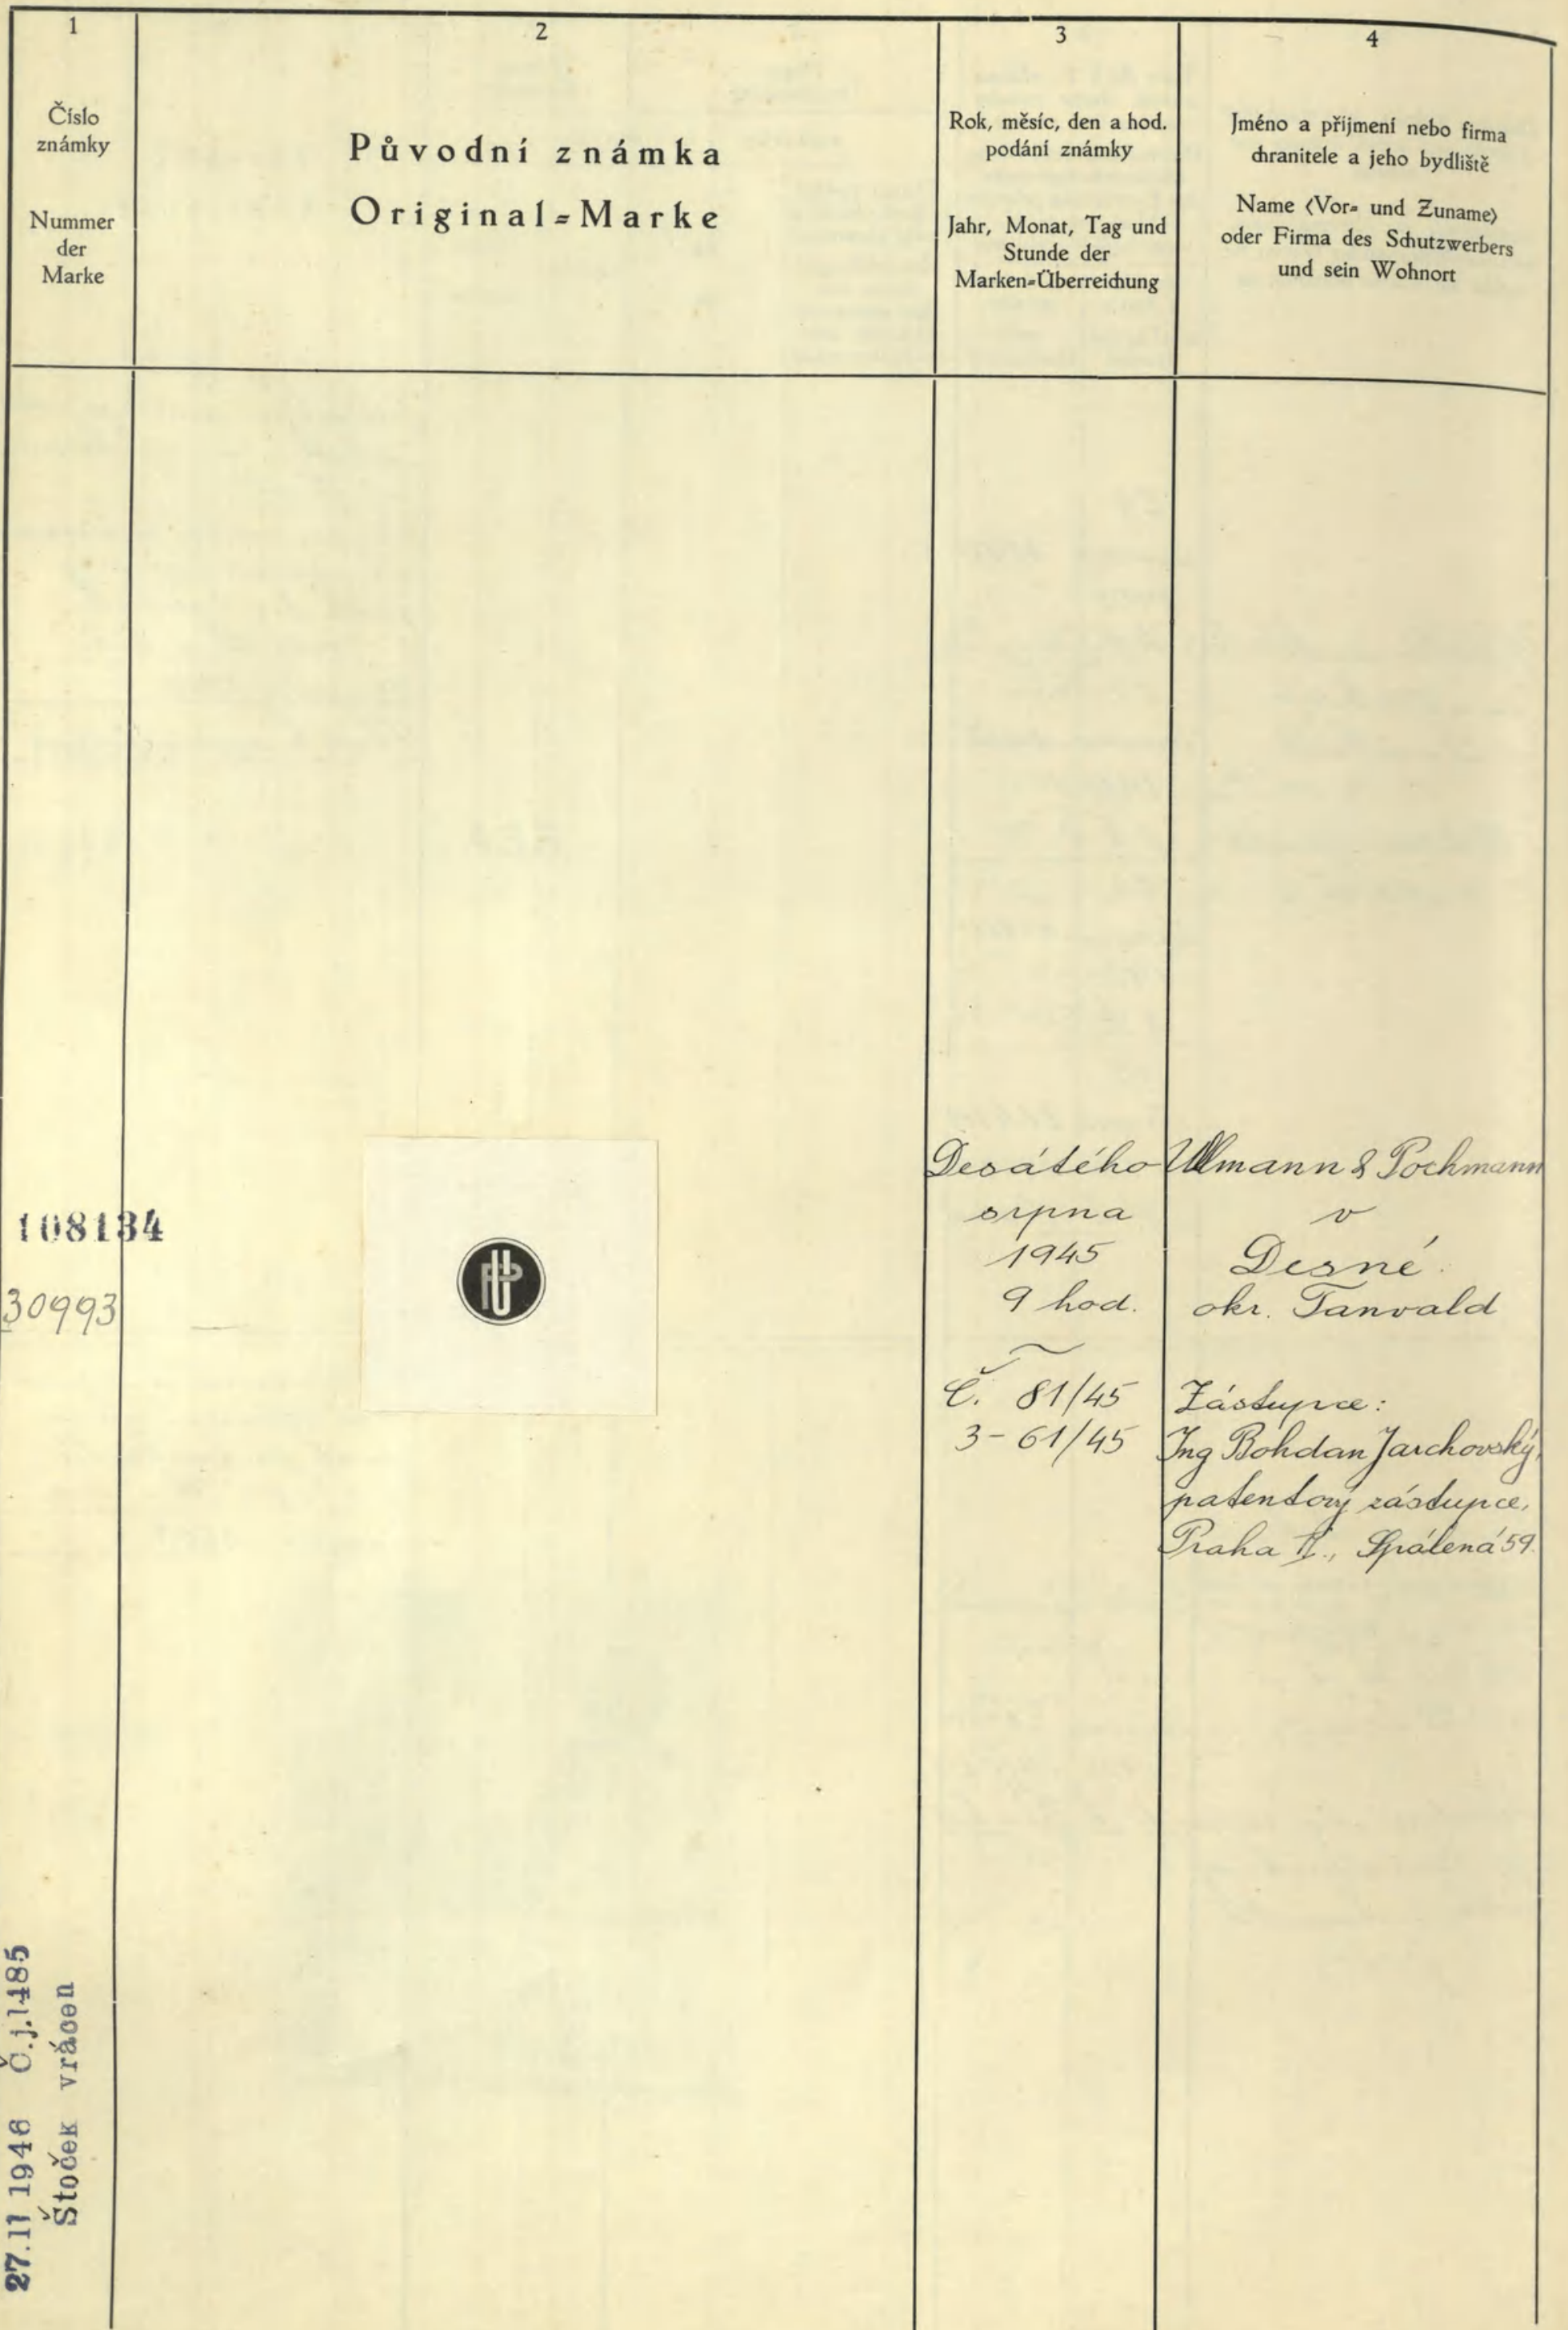 1
Číslo
známky
Nummer
der
Marke
2
Původní známka
Original=Marke
3
Rok, měsíc, den a hod.
podání známky
Jahr, Monat, Tag und
Stunde der
Marken=Überreichung
4
Jméno a přijmení nebo firma
chranitele a jeho bydliště
Name (Vor= und Zuname)
oder Firma des Schutzwerbers
und sein Wohnort
108134
30993
UP
Desátého
srpna
1945
9 hod.
Č. 81/45
3- 61/45
Ullmann & Pochmann
v
Desné.
okr. Tanvald
Zástupce:
Ing Bohdan Jarchovský,
patentový zástupce,
Praha II., Spálená 59.
27.11 1946 Č.j.1485
Štoček vrácen